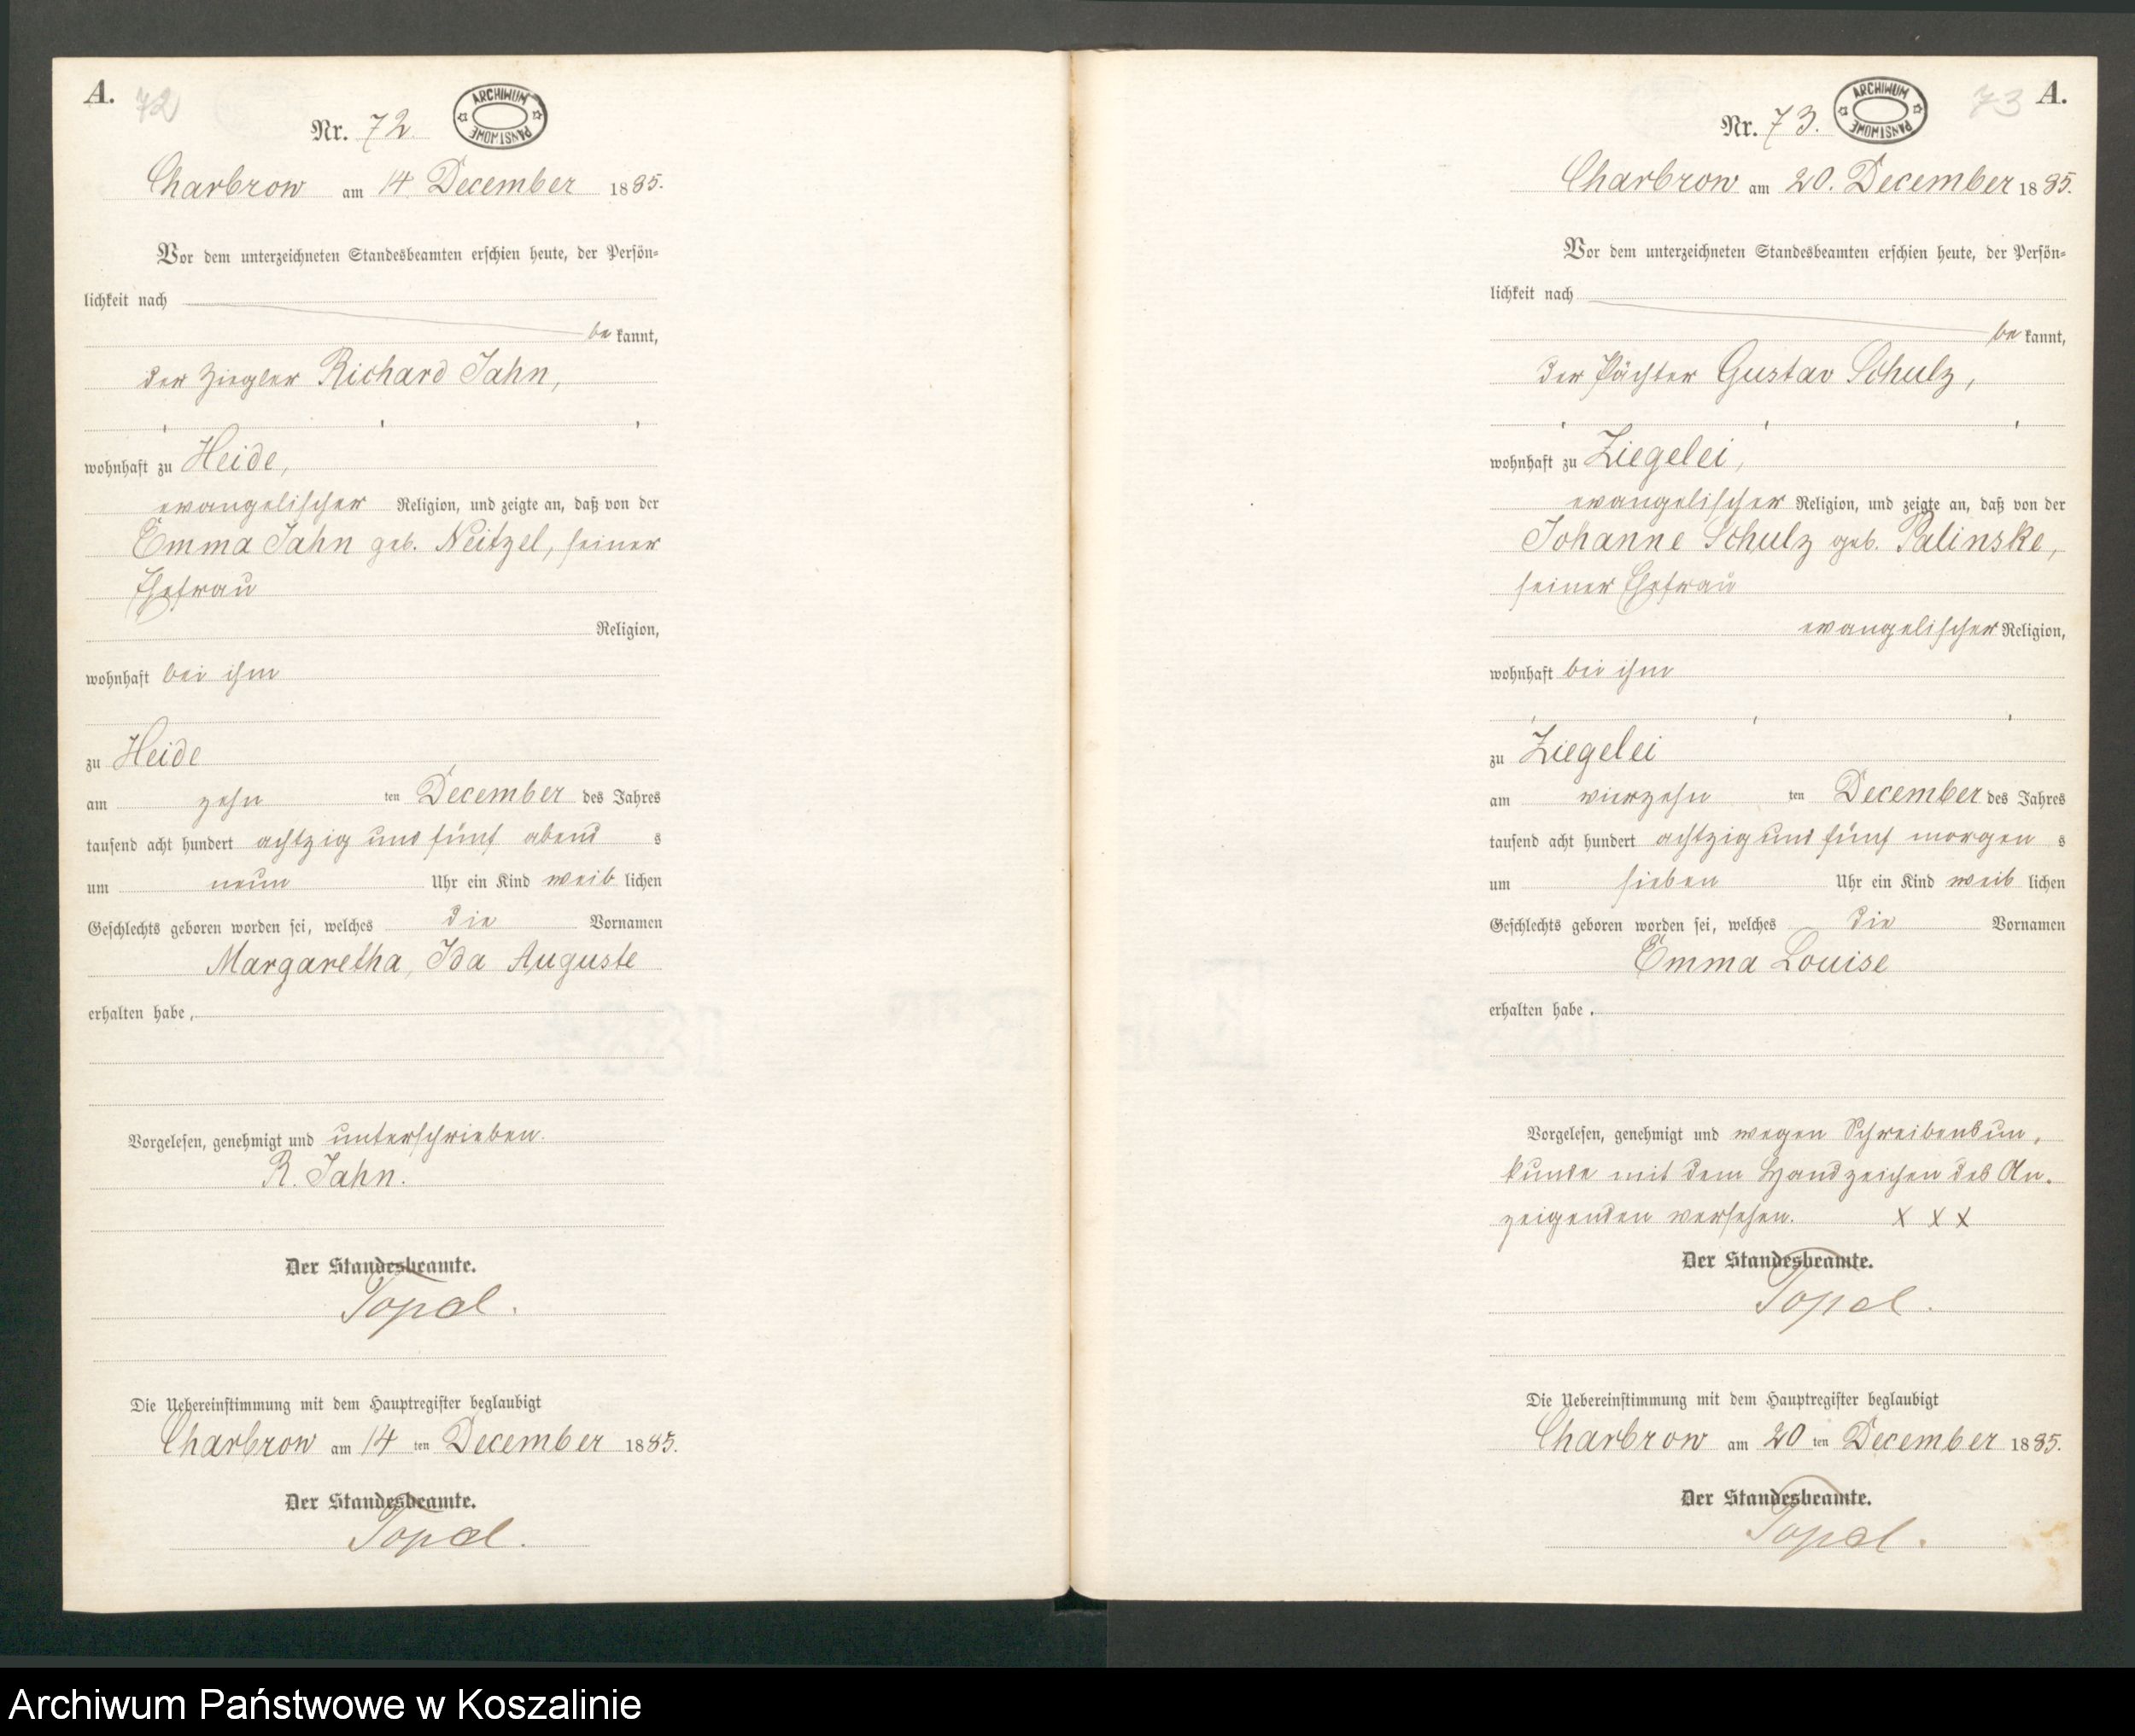 A. 72
Nr. 72.
ARCHIWUM PAŃSTWOWE
Charbrow am 14. December 1885.
Vor dem unterzeichneten Standesbeamten erschien heute, der Persön=
lichkeit nach
be kannt,
der Ziegler Richard Jahn,
wohnhaft zu Heide,
evangelischer Religion, und zeigte an, daß von der
Emma Jahn geb. Neitzel, seiner
Ehefrau
Religion,
wohnhaft bei ihm
zu Heide
am zehn ten December des Jahres
tausend acht hundert achtzig und fünf abend s
um neun Uhr ein Kind weib lichen
Geschlechts geboren worden sei, welches die Vornamen
Margaretha, Ida Auguste
erhalten habe,
Vorgelesen, genehmigt und unterschrieben.
R. Jahn.
Der Standesbeamte.
Topel.
Die Uebereinstimmung mit dem Hauptregister beglaubigt
Charbrow am 14 ten December 1885.
Der Standesbeamte.
Topel.
73 A.
Nr. 73.
ARCHIWUM PAŃSTWOWE
Charbrow am 20. December 1885.
Vor dem unterzeichneten Standesbeamten erschien heute, der Persön=
lichkeit nach
be kannt,
der Pächter Gustav Schulz,
wohnhaft zu Ziegelei,
evangelischer Religion, und zeigte an, daß von der
Johanne Schulz geb. Palinske,
seiner Ehefrau
evangelischer Religion,
wohnhaft bei ihm
zu Ziegelei
am vierzehn ten December des Jahres
tausend acht hundert achtzig und fünf morgen s
um sieben Uhr ein Kind weib lichen
Geschlechts geboren worden sei, welches die Vornamen
Emma Louise
erhalten habe.
Vorgelesen, genehmigt und wegen Schreibensun-
kunde mit dem Handzeichen des An-
zeigenden versehen. X X X
Der Standesbeamte.
Topel.
Die Uebereinstimmung mit dem Hauptregister beglaubigt
Charbrow am 20 ten December 1885.
Der Standesbeamte.
Topel.
Archiwum Państwowe w Koszalinie